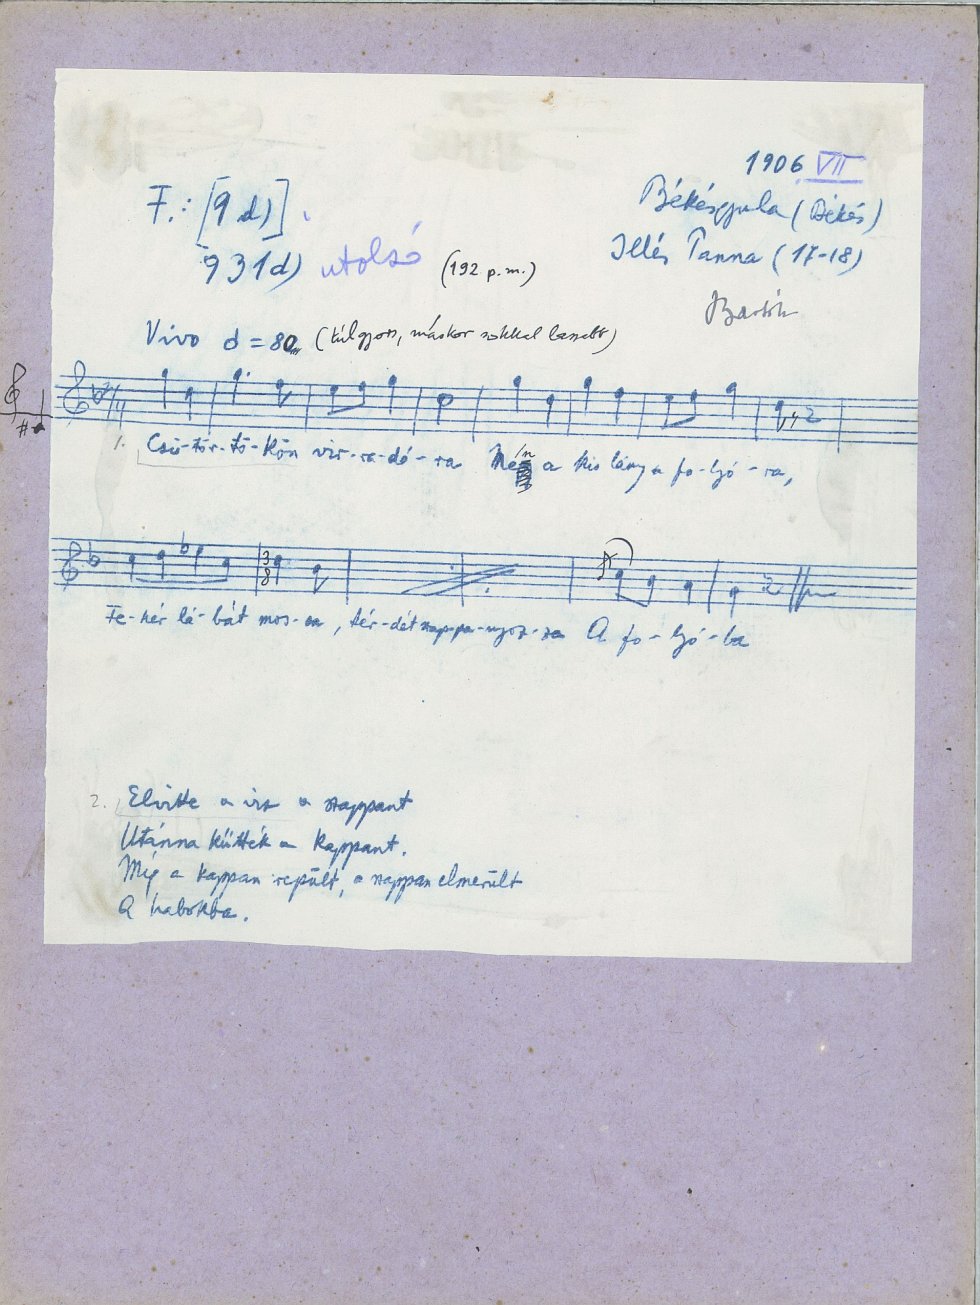 1906 VII
F.: [9 d)]
Békésgyula (Békés)
931d) utolsó (192 p.m.)
Illés Panna (17-18)
Bartók
Vivo d = 80 (túlgyors, máskor sokkal lassabb)
1. Csü-tör-tö-kön vir-ra-dó-ra Mén a kis lány a fo-lyó-ra,
3
8
Fe-hér lá-bát mos-sa, tér-dét szap-pa-nyoz-za A fo-lyó-ba
2. Elvitte a víz a szappant
Utánna kütték a kappant.
Míg a kappan repült, a szappan elmerült
A habokba.